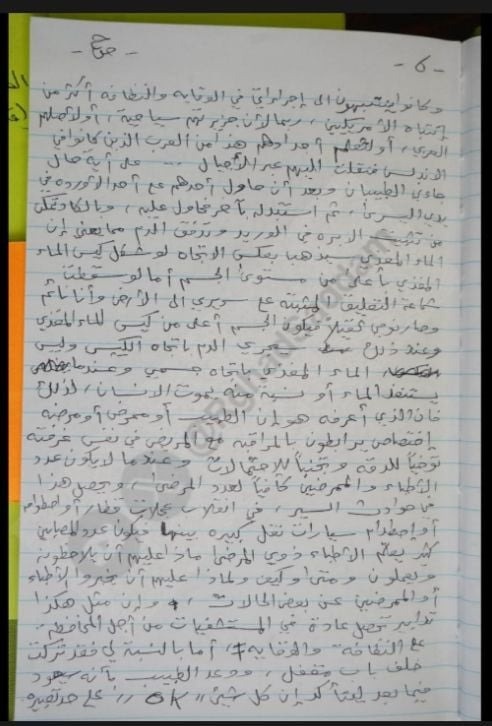 - 6 - - صوح -
وكانوا ينتبهون الى إجراءاتي في الوقايه والنظافه أكثر من
إنتباه الأمريكيين، ربما لأن جزيرتهم سياحية، أو لأصلهم
العربي، أجدادهم هذا من العرب الذين كانوا في
الأندلس فنقلت اليهم عبر الأجيال ... على أية حال
جاءني الطبيبان وبعد أن حاول أحدهم مع أحد الأورده في
يدي اليسرى، ثم استبدله بآخر محاول عليه، وبالكاد تمكن
من تثبيت الابره في الوريد وتدفق الدم مما يعني إن
الماء المغذي سيذهب بعكس الاتجاه لو شغل كيس الماء
المغذي بأعلى من مستوى الجسم أما لو سقطت
شماعة التعليق المثبته مع سريري الى الأرض وأنا نائم
وصار نومي ثقيلا فيكون الجسم أعلى من كيس الماء المغذي
وعند ذلك سيجري الدم باتجاه الكيس وليس
الماء المغذي باتجاه جسمي وعندما
يستنفذ الماء أو نسبه منه يموت الانسان، لذلك
فان الذي أعرفه هو إن الطبيب أو ممرض أو ممرضه
إختصاص يرابطون بالمراقبه مع المريض في نفس غرفته
توخياً للدقه وتجنباً للاحتمالات وعندما لا يكون عدد
الأطباء والممرضين كافياً لعدد المرضى، ويحصل هذا
في حوادث السير، في انقلاب عجلات قطار، أو اصطدام
أو إصطدام سيارات نقل كبيره بينها فيكون عدد المصابين
كثير يعلّم الأطباء ذوي المرضى ماذا عليهم أن يلاحظونه
ويعملون ومتى وكيف ولماذا عليهم أن يخبروا الأطباء
أو الممرضين عن بعض الحالات، وإن مثل هكذا
تدابير تحصل عادة في المستشفيات من أجل المحافظه
على النظافه والوقايه، أما بالنسبة لي فقد تركت
خلف باب مقفل، ووعد الطبيب بأنه سيعود
فيما بعد ليتأكد إن كل شيئ " OK " على حد تعبيره